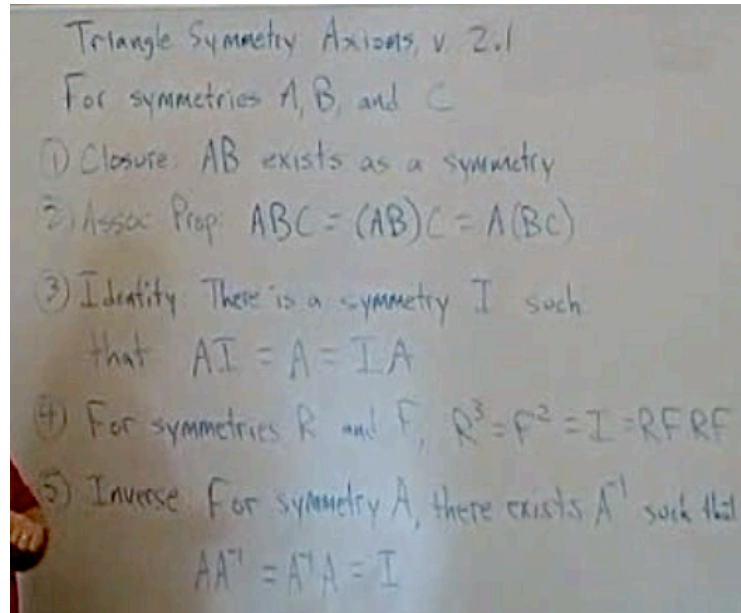 Triangle Symmetry Axioms, v 2.1
For symmetries A, B, and C
① Closure: AB exists as a symmetry
② Assoc Prop: ABC = (AB)C = A(BC)
③ Identity: There is a symmetry I such
that AI = A = IA
④ For symmetries R and F, R³ = F² = I = RFRF
⑤ Inverse For symmetry A, there exists A⁻¹ such that
AA⁻¹ = A⁻¹A = I